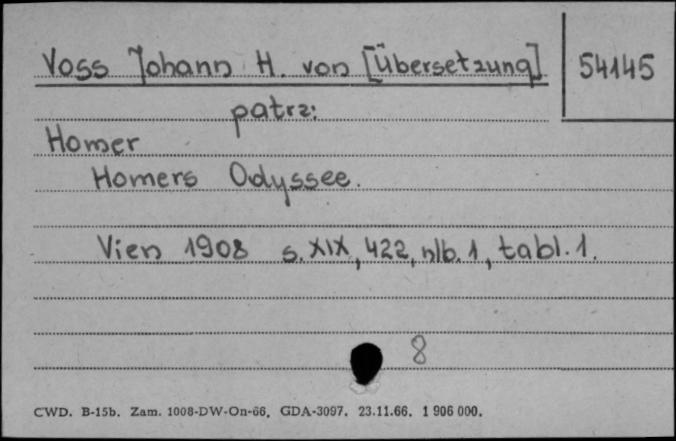 Voss Johann H. von [Übersetzung] 54145
patrz:
Homer
Homers Odyssee.
Vien 1908 s. XIX, 422, nlb. 1, tabl. 1.
8
CWD. B-15b. Zam. 1008-DW-On-66. GDA-3097. 23.11.66. 1 906 000.